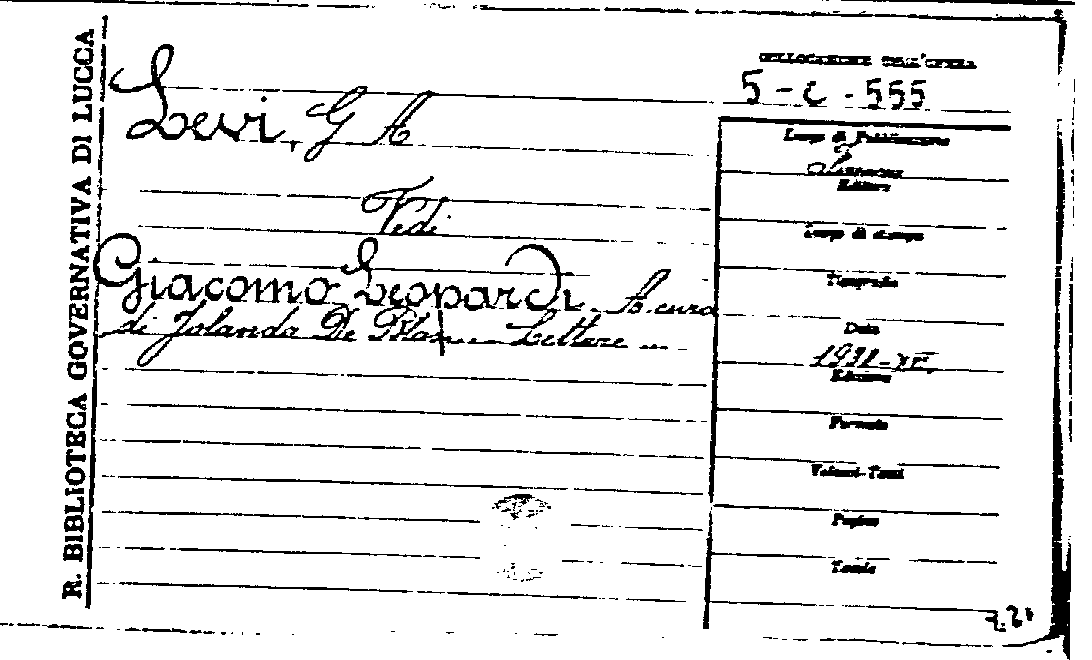 R. BIBLIOTECA GOVERNATIVA DI LUCCA
Levi, G A
Vedi
Giacomo Leopardi. A cura
di Jolanda De Blasi. Lettere ...
COLLOCAZIONE DELL'OPERA
5-C-555
Luogo di Pubblicazione
Firenze
Editore
Luogo di stampa
Tipografia
Data
Edizione
Formato
Volumi-Tomi
Pagine
Tavole